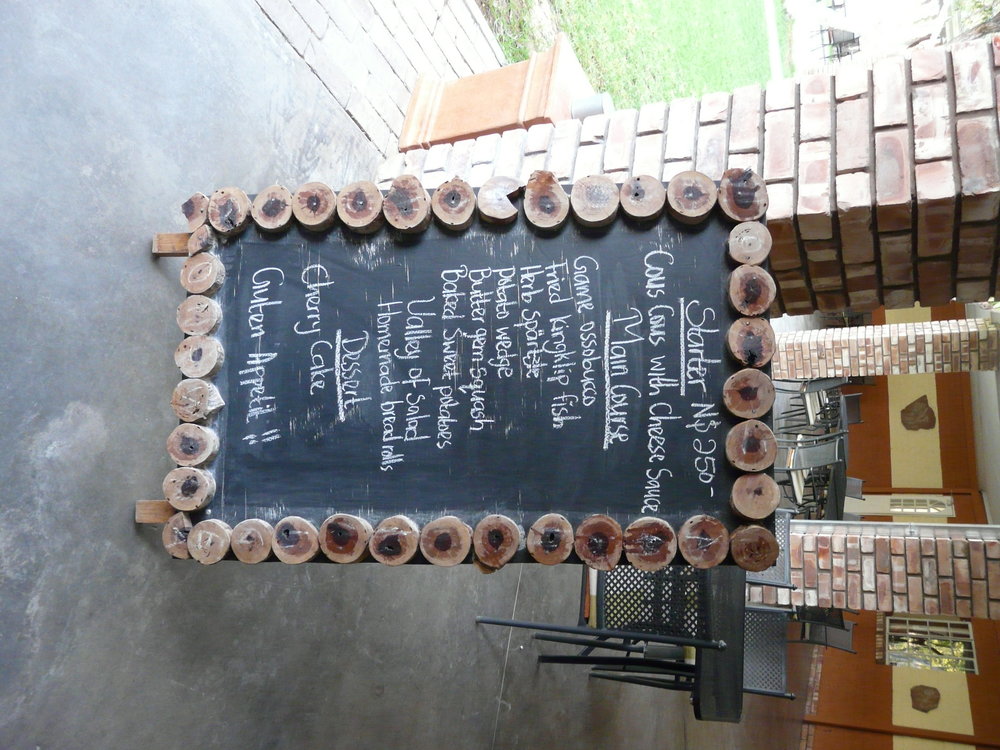 Starter N$ 250-
Cous Cous with Cheese Sauce
Main Course
Game ossobucco
Fried Kingklip fish
Herb Spätzle
Potato wedge
Butter gem Squash
Baked Sweet potatoes
Valley of Salad
Homemade bread rolls
Dessert
Cherry Cake
Guten Appetit !!